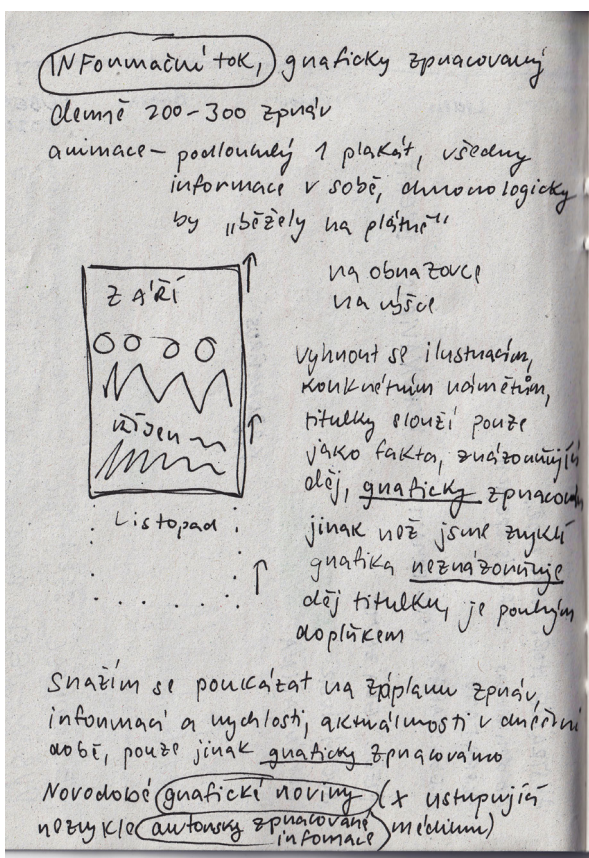 INFormační tok, graficky zpracovaný
denně 200-300 zpráv
animace - podlouhlý 1 plakát, všechny
informace v sobě, chronologicky
by „běžely na plátně"
na obrazovce
na výšce
ZÁŘÍ
říjen
Listopad
vyhnout se ilustracím,
konkrétním námětům,
titulky slouží pouze
jako fakta, znázorňující
děj, graficky zpracován
jinak než jsme zvyklí
grafika neznázorňuje
děj titulku, je pouhým
doplňkem
Snažím se poukázat na záplavu zpráv,
informací a rychlosti, aktuálnosti v dnešní
době, pouze jinak graficky zpracováno
Novodobé grafické noviny (x ustupující
nezvykle autorsky zpracované médium)
infomace